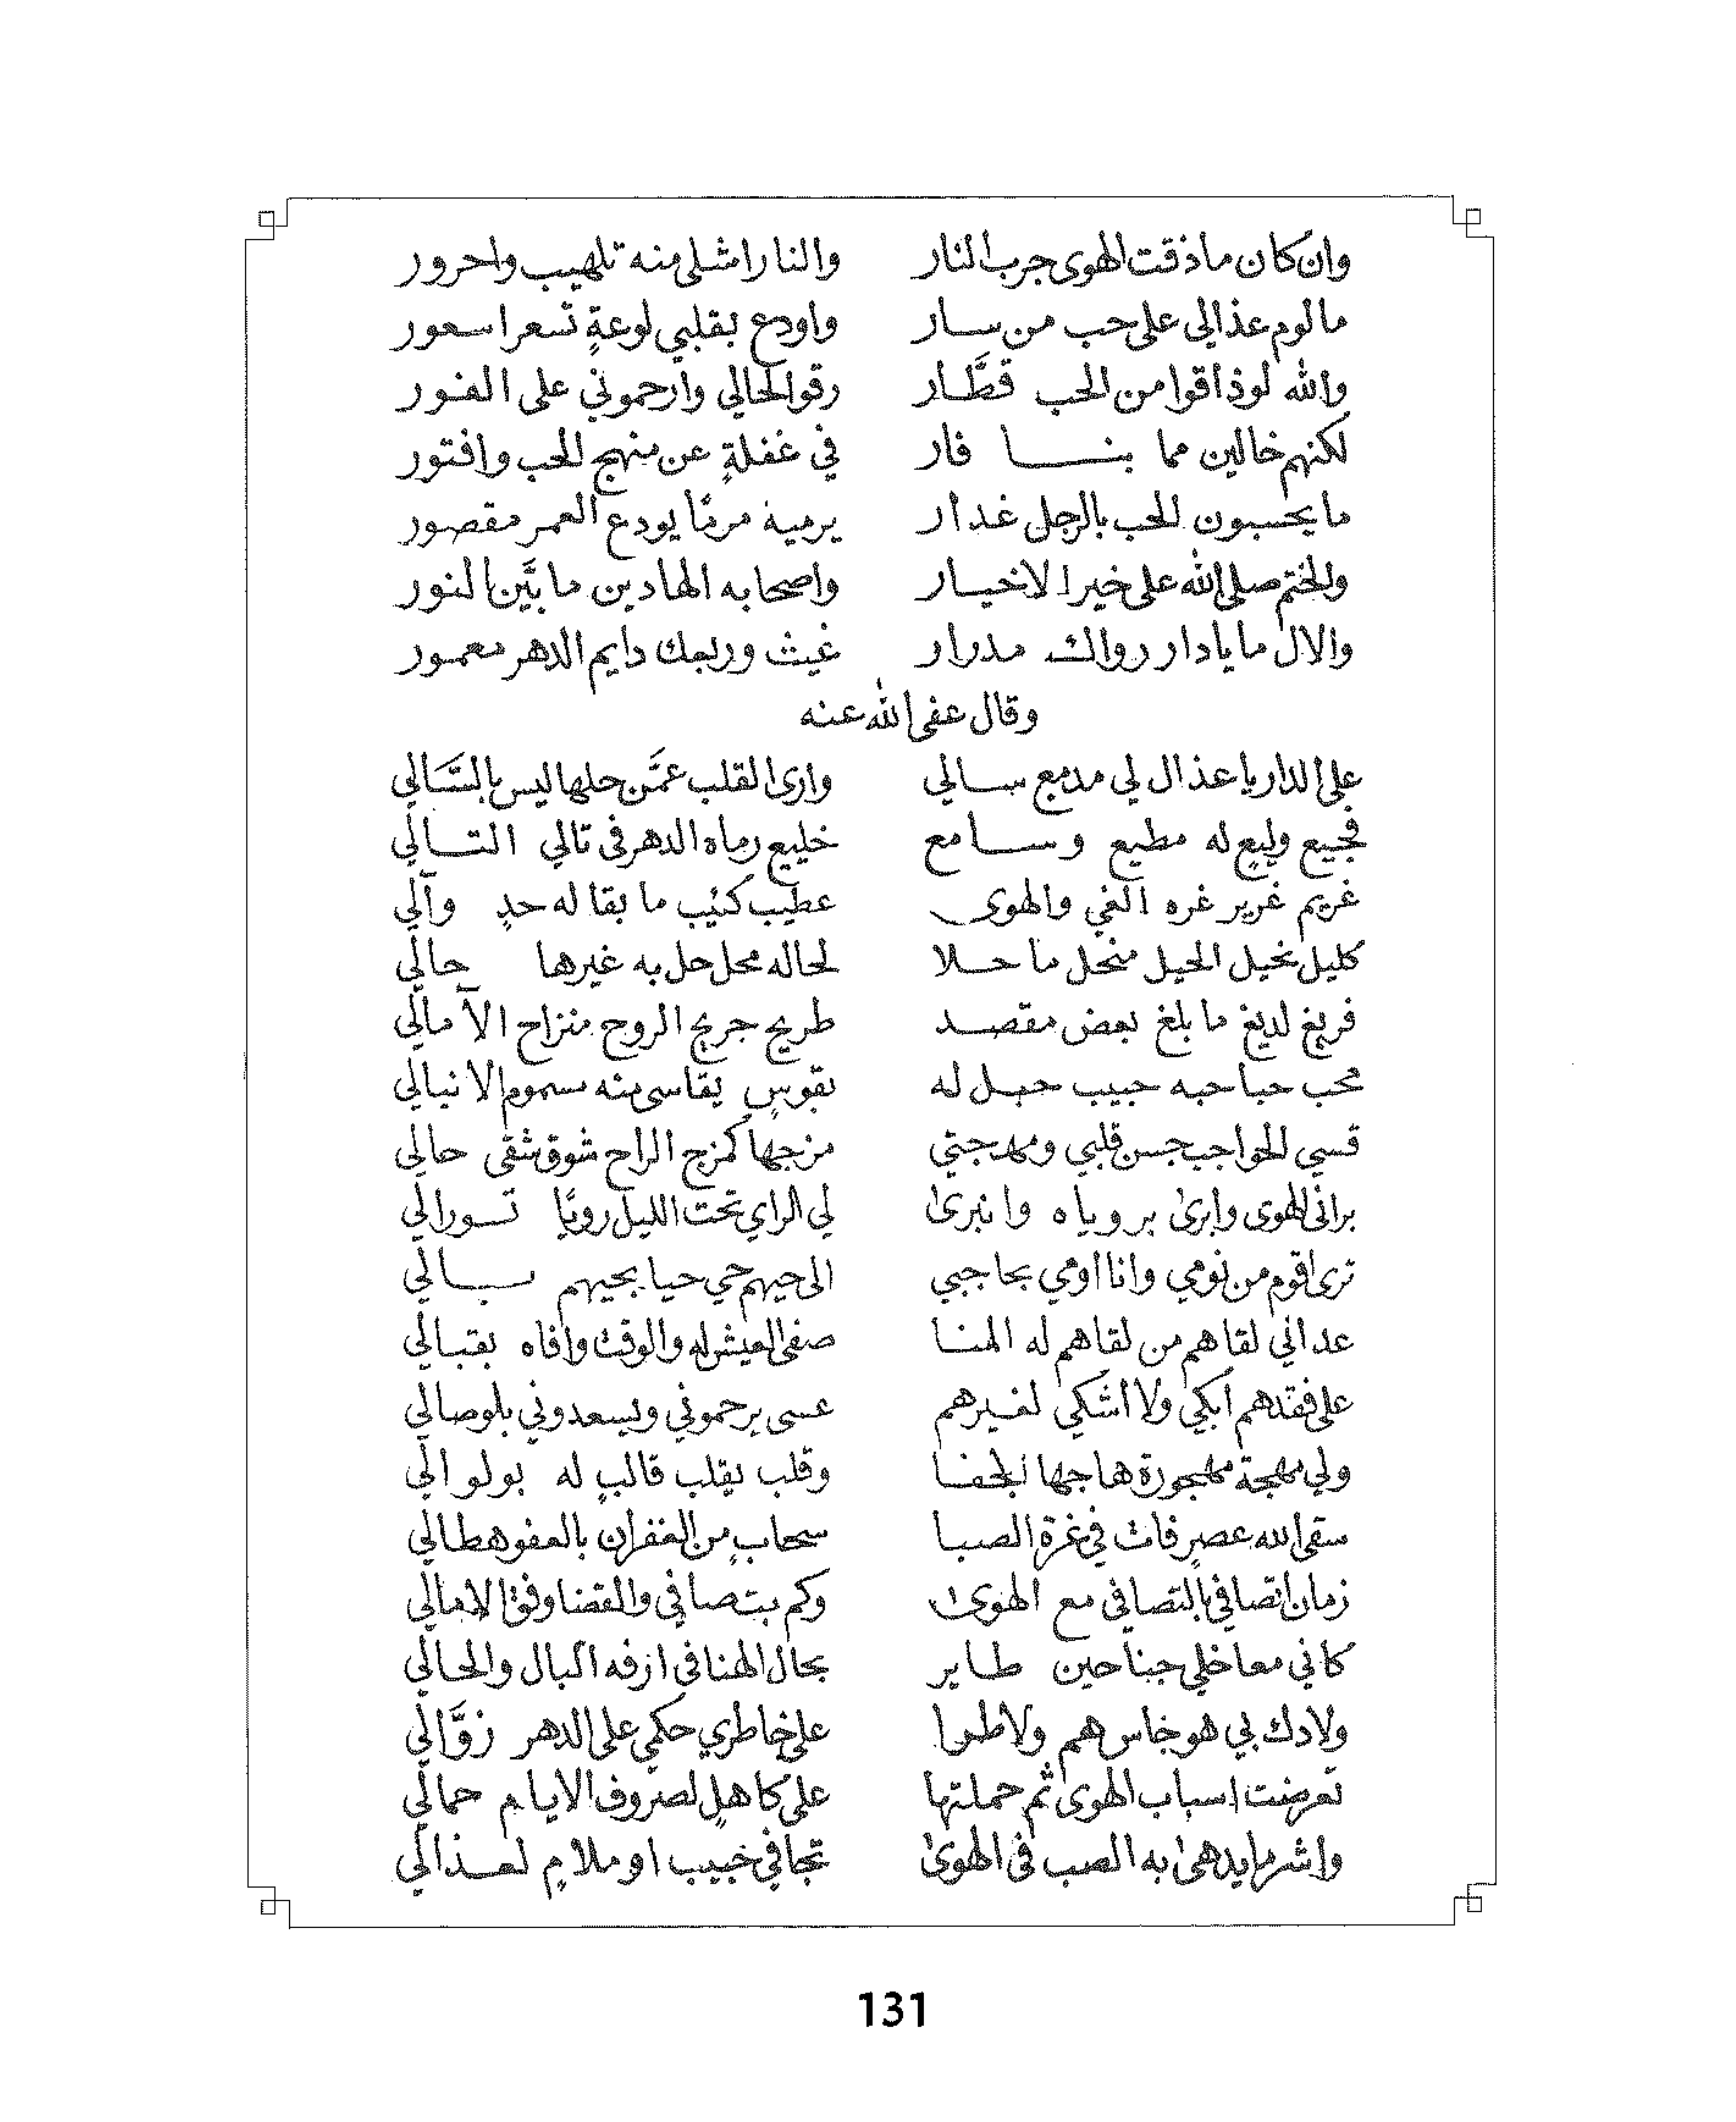 وان كان ما ذقت الهوى جرب النار والنار اشلى منه تلهيب واحرور
ما لوم عذالي على حب من سار واودع بقلبي لوعةٍ تسعر اسعور
والله لو ذاقوا من الحب قطَّار رقوا لحالي وارحموني على الفور
لكنهم خالين مما بنا فار في غفلةٍ عن منهج الحب وافتور
ما يحسبون الحب بالرجل غدار يرميه مرمًا يودع العمر مقصور
والختم صلى الله على خير الاخيار واصحابه الهادين ما بيَّن النور
والال ما يا دار رواك مدرار غيث وربعك دايم الدهر معمور
وقال عفى الله عنه
على الدار يا عذال لي مدمع سالي وارى القلب عمَّن حلها ليس بالسَّالي
فجيع وليعٍ له مطيع وسامع خليع رماه الدهر في تالي التالي
غريم غرير غره الغي والهوى عطيب كئيب ما بقا له حدٍ وآلي
كليل نحيل الحيل منحل ما حلا لحاله محل حل به غيرها حالي
فريغ لديغ ما بلغ بعض مقصد طريح جريح الروح منزاح الآمالي
محب حبا حبه حبيب حبل له بقوسٍ يقاسى منه سموم الانبالي
قسي الحواجب جسن قلبي ومهجتي مزجها كمزج الراح شوق شقى حالي
براني الهوى وابرىٰ برؤياه وانبرىٰ لي الراي تحت الليل رويًا تسورالي
ترى اقوم من نومي وانا اومي بحاجبي الى حيهم حي حيا بحيهم سالي
عداني لقاهم من لقاهم له المنا صفى العيش له والوقت وافاه بقبالي
على فقدهم ابكي ولا اشكي لغيرهم عسى يرحموني ويسعدوني بلوصالي
ولي مهجة مهجورة هاجها الجفا وقلب يقلب قالبٍ له بولوالي
سقى الله عصرٍ فات في غرة الصبا سحابٍ من الغفران بالعفو هطالي
زمان اتصافي بالتصافي مع الهوىٰ وكم بت صافي والقضا وفق الامالي
كاني معا خلي جناحين طاير بحال الهنا في ازفه البال والحالي
ولا دك بي هوجاس هم ولا طرا على خاطري حكمي على الدهر زوَّالي
تعرضت اسباب الهوى ثم حملتها على كاهلٍ لصروف الايام حمالي
واشر ما يدهىٰ به الصب في الهوىٰ تجافي حبيب او ملامٍ لعذالي
131